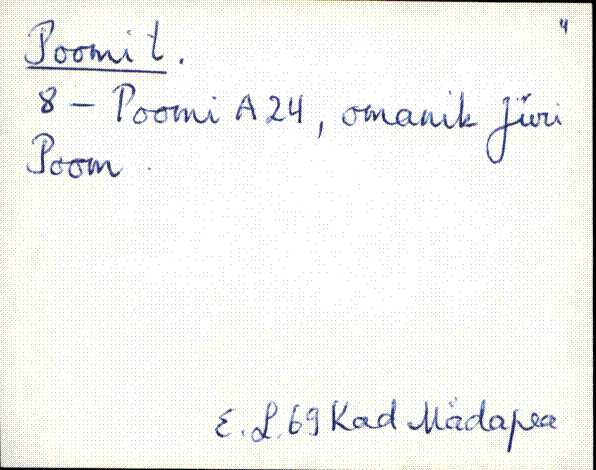 4
Poomi t.
8 - Poomi A 24, omanik Jüri
Poom
E. L. 69 Kad Mädapea